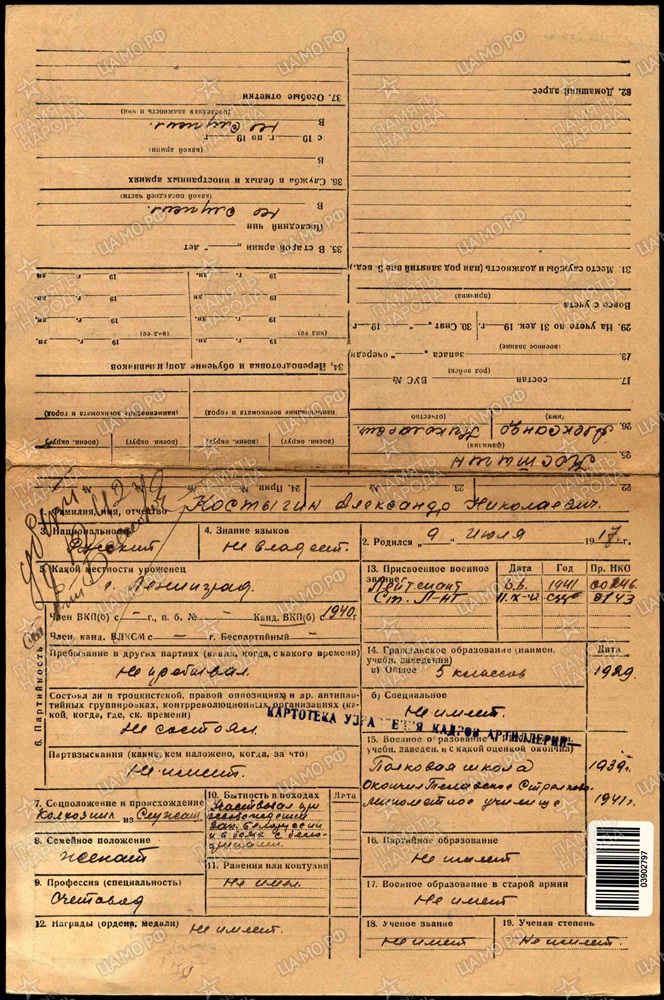 82. Домашний адрес
31. Место службы и должность (или род занятий вне В. вед.)
(причина)
Вовсе с учета
29. На учете по 31 дек. 19 г. 30. Снят „ “ 19 г.
(военное звание)
запаса „ “ очереди
(род войск)
17. состав ВУС №
(имя) (отчество)
26. Александр Николаевич
(фамилия)
25. Костыгин
37. Особые отметки
(последняя должность и чин)
В не служил.
с 19 г. по 19 г.
(какой армии)
В
36. Служба в белых и иностранных армиях
(какой последней части)
В не служил.
Последний чин
35. В старой армии „ “ лет
34. Переподготовка и обучение допризывников
(наименование военкомата и город) (наименование военкомата и город)
(военн. округ) (военн. округ) (военн. округ) (военн. округ)
22. № 23. № 24. Прип. №
1. Фамилия, имя, отчество Костыгин Александр Николаевич.
3. Национальность Русский
4. Знание языков Не владеет.
2. Родился „9“ июля 1917 г.
5. Какой местности уроженец
г. Ленинград.
6. Партийность
Член ВКП(б) с — г., п. б. № — Канд. ВКП(б) с 1940 г.
Член, канд. ВЛКСМ с — г. Беспартийный —
Пребывание в других партиях (каких, когда, с какого времени)
Не пребывал.
Состоял ли в троцкистской, правой оппозициях и др. антипартийных группировках, контрреволюционных организациях (какой, когда, где, ск. времени)
Не состоял.
Партвзыскания (какие, кем наложено, когда, за что)
Не имеет.
13. Присвоенное военное звание Дата Год Пр. НКО
Лейтенант 1941 00246
Ст. Л-нт 0143
14. Гражданское образование (наимен. учебн. заведения) Дата
а) Общее 5 классов 1929.
б) Специальное
Не имеет.
КАРТОТЕКА УПРАВЛЕНИЯ КАДРОВ АРТИЛЛЕРИИ
15. Военное образование (наимен. учебн. заведен. и с какой оценкой окончил)
Полковая школа 1939г.
Окончил Стрелково-
минометное училище 1941г.
7. Соцположение и происхождение
Колхозник из Служащ.
8. Семейное положение
Женат
9. Профессия (специальность)
Счетовод
10. Бытность в походах Дата
Участвовал при
освобождении
Зап. Белоруссии
11. Ранения или контузии
Не имел.
16. Партийное образование
Не имеет
17. Военное образование в старой армии
Не имеет
12. Награды (ордена, медали) Не имеет.
18. Ученое звание
Не имеет
19. Ученая степень
Не имеет.
03902797
ПАМЯТЬ НАРОДА
ЦАМО.РФ